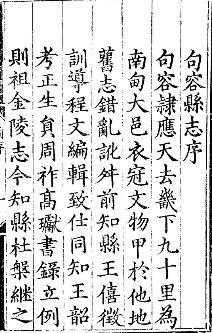 句容縣志序
句容隸應天去畿下九十里為
南甸大邑衣冠文物甲於他地
舊志錯亂訛舛前知縣王僖徵
訓導程文編輯致仕同知王韶
考正生員周祚高瓛書錄立例
則祖金陵志今知縣杜槃繼之